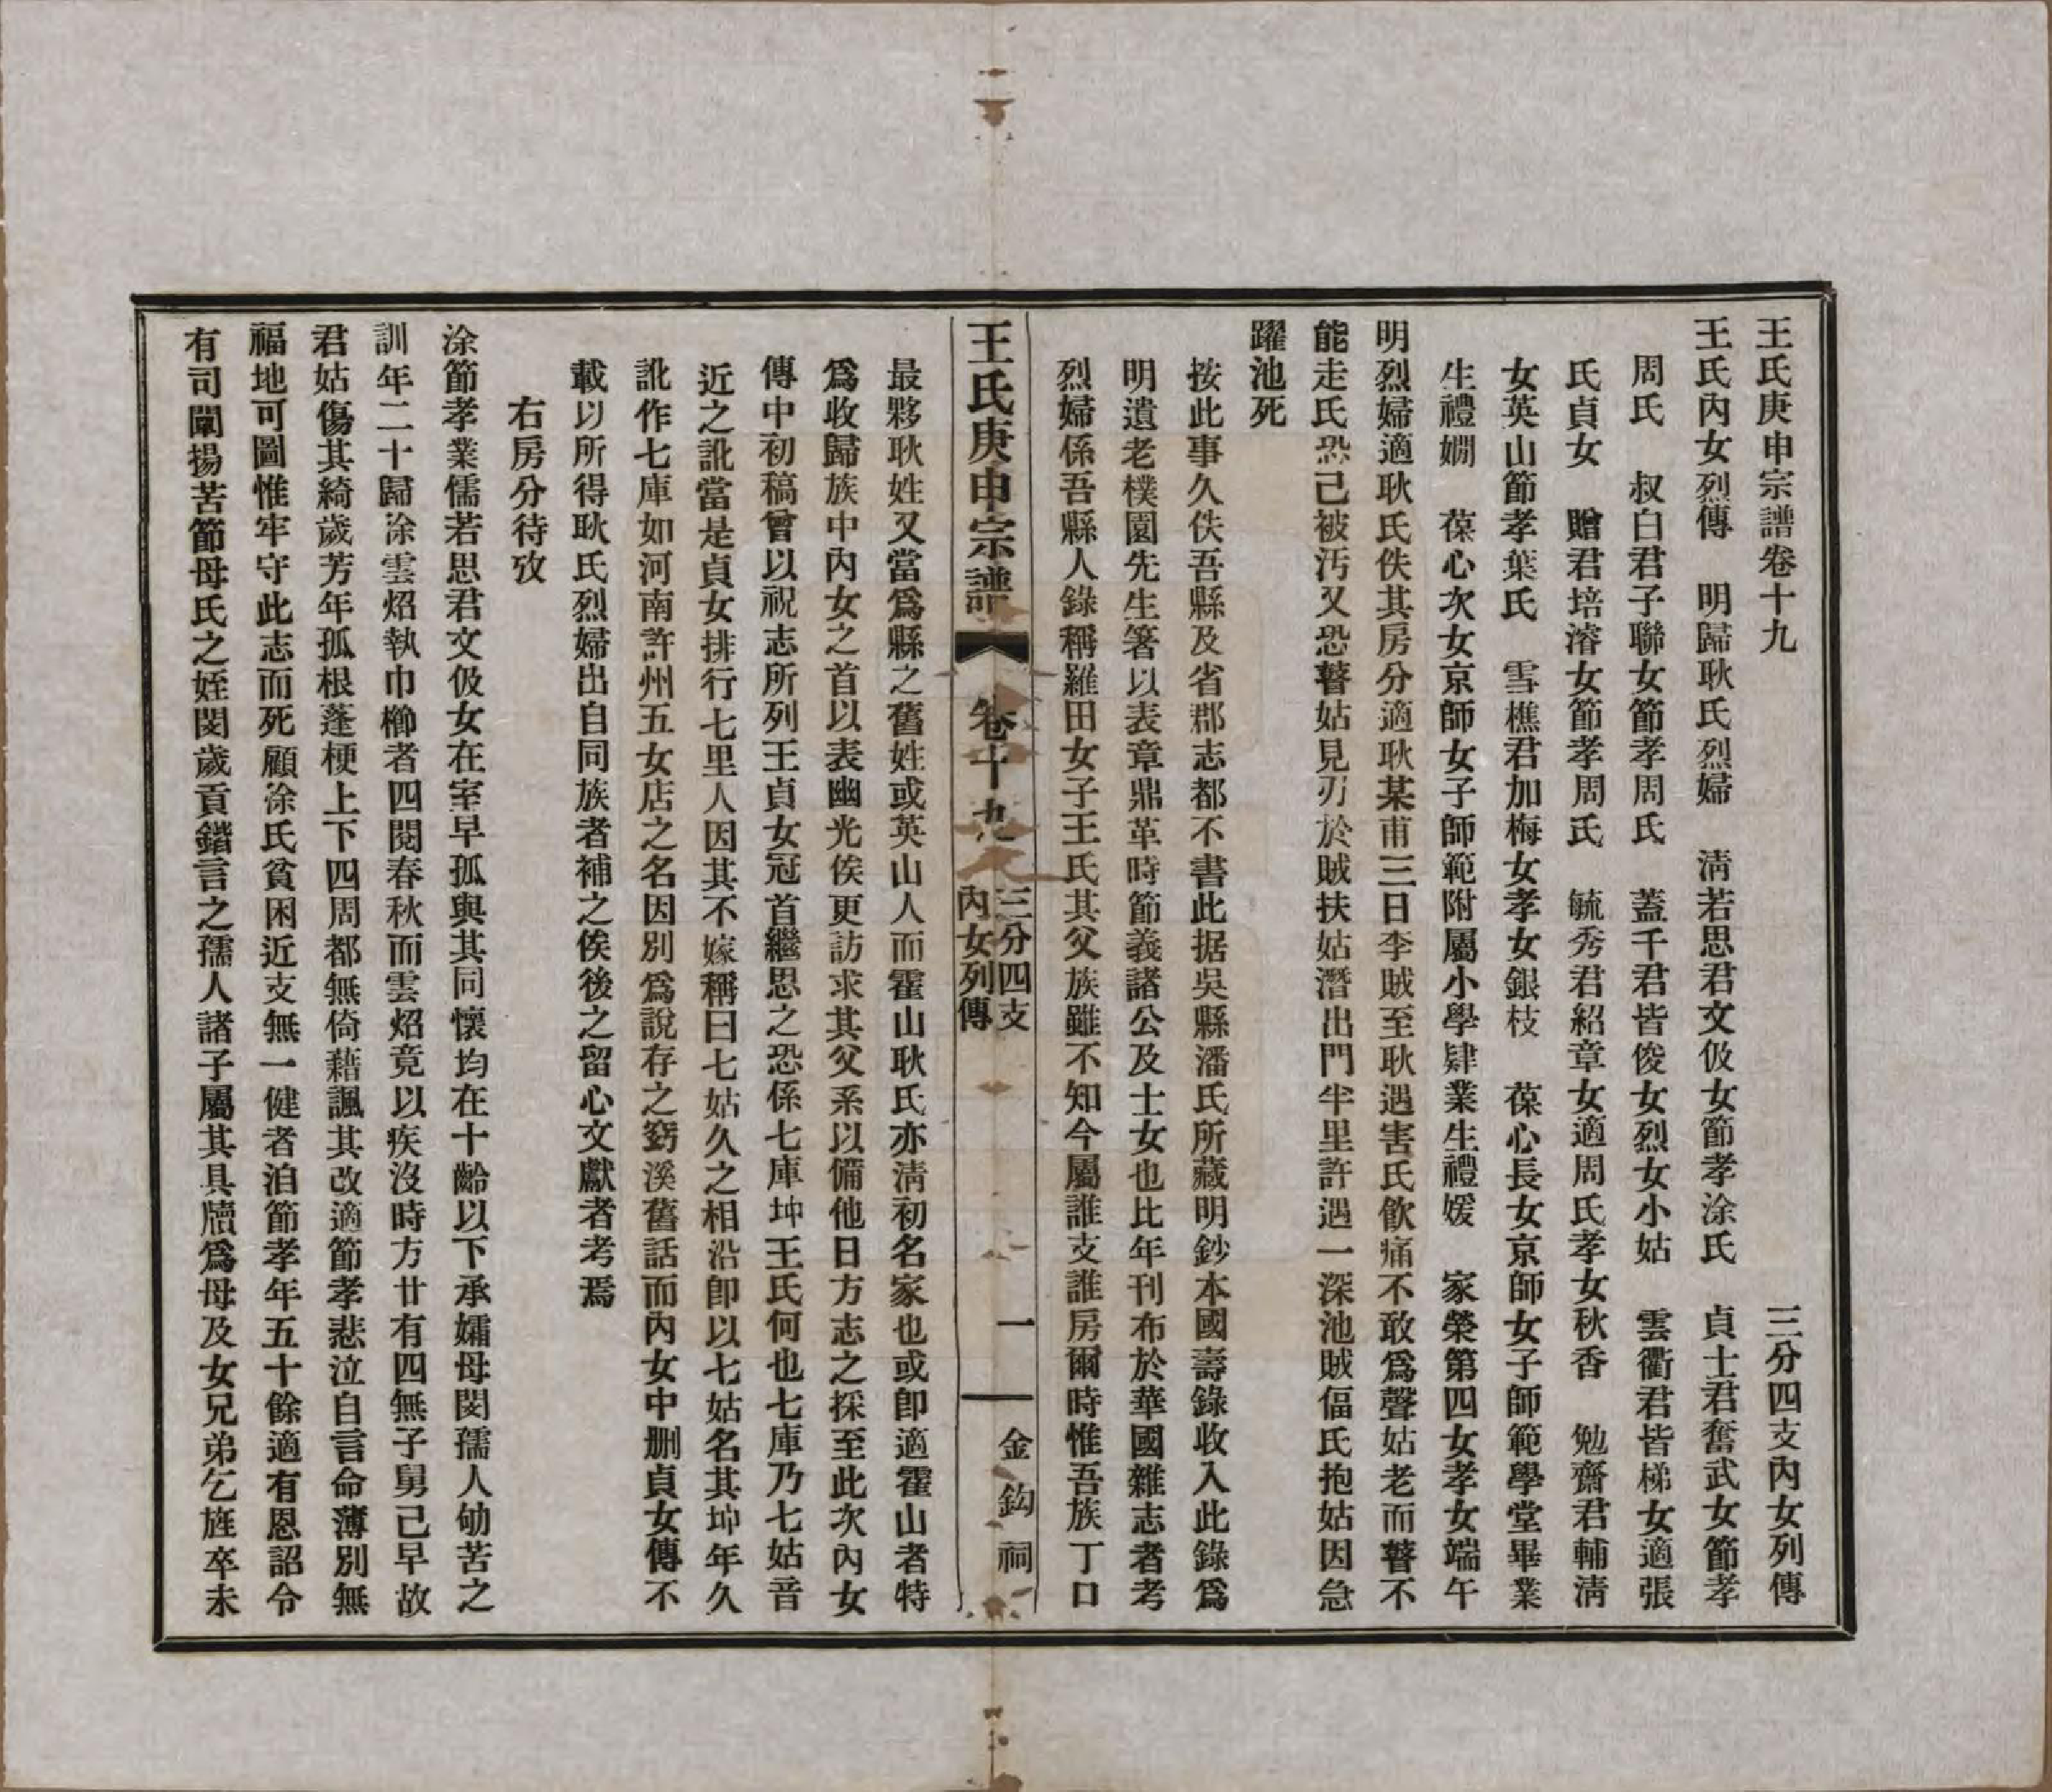 王氏庚申宗譜卷十九
三分四支內女列傳
王氏內女列傳　明歸耿氏烈婦　清若思君文伋女節孝涂氏　貞士君奮武女節孝
周氏　叔白君子聯女節孝周氏　蓋千君皆俊女烈女小姑　雲衢君皆梯女適張
氏貞女　贈君培濬女節孝周氏　毓秀君紹章女適周氏孝女秋香　勉齋君輔清
女英山節孝葉氏　雪樵君加梅女孝女銀枝　葆心長女京師女子師範學堂畢業
生禮嫻　葆心次女京師女子師範附屬小學肄業生禮媛　家榮第四女孝女端午
明烈婦適耿氏佚其房分適耿某甫三日李賊至耿遇害氏飲痛不敢爲聲姑老而瞽不
能走氏恐己被汚又恐瞽姑見刃於賊扶姑潛出門半里許遇一深池賊偪氏抱姑因急
躍池死
按此事久佚吾縣及省郡志都不書此据吳縣潘氏所藏明鈔本國壽錄收入此錄爲
明遺老樸園先生箸以表章鼎革時節義諸公及士女也比年刊布於華國雜志者考
烈婦係吾縣人錄稱羅田女子王氏其父族雖不知今屬誰支誰房爾時惟吾族丁口
王氏庚申宗譜　卷十九　三分四支　內女列傳　一　金鈎祠
最夥耿姓又當爲縣之舊姓或英山人而霍山耿氏亦清初名家也或卽適霍山者特
爲收歸族中內女之首以表幽光俟更訪求其父系以備他日方志之採至此次內女
傳中初稿曾以祝志所列王貞女冠首繼思之恐係七庫坤王氏何也七庫乃七姑音
近之訛當是貞女排行七里人因其不嫁稱曰七姑久之相沿卽以七姑名其坤年久
訛作七庫如河南許州五女店之名因別爲說存之窈溪舊話而內女中删貞女傳不
載以所得耿氏烈婦出自同族者補之俟後之留心文獻者考焉
右房分待攷
涂節孝業儒若思君文伋女在室早孤與其同懷均在十齡以下承孀母閔孺人劬苦之
訓年二十歸涂雲炤執巾櫛者四閱春秋而雲炤竟以疾沒時方廿有四無子舅已早故
君姑傷其綺歲芳年孤根蓬梗上下四周都無倚藉諷其改適節孝悲泣自言命薄別無
福地可圖惟牢守此志而死顧涂氏貧困近支無一健者洎節孝年五十餘適有恩詔令
有司闡揚苦節母氏之姪閔歲貢鍇言之孺人諸子屬其具牘爲母及女兄弟乞旌卒未